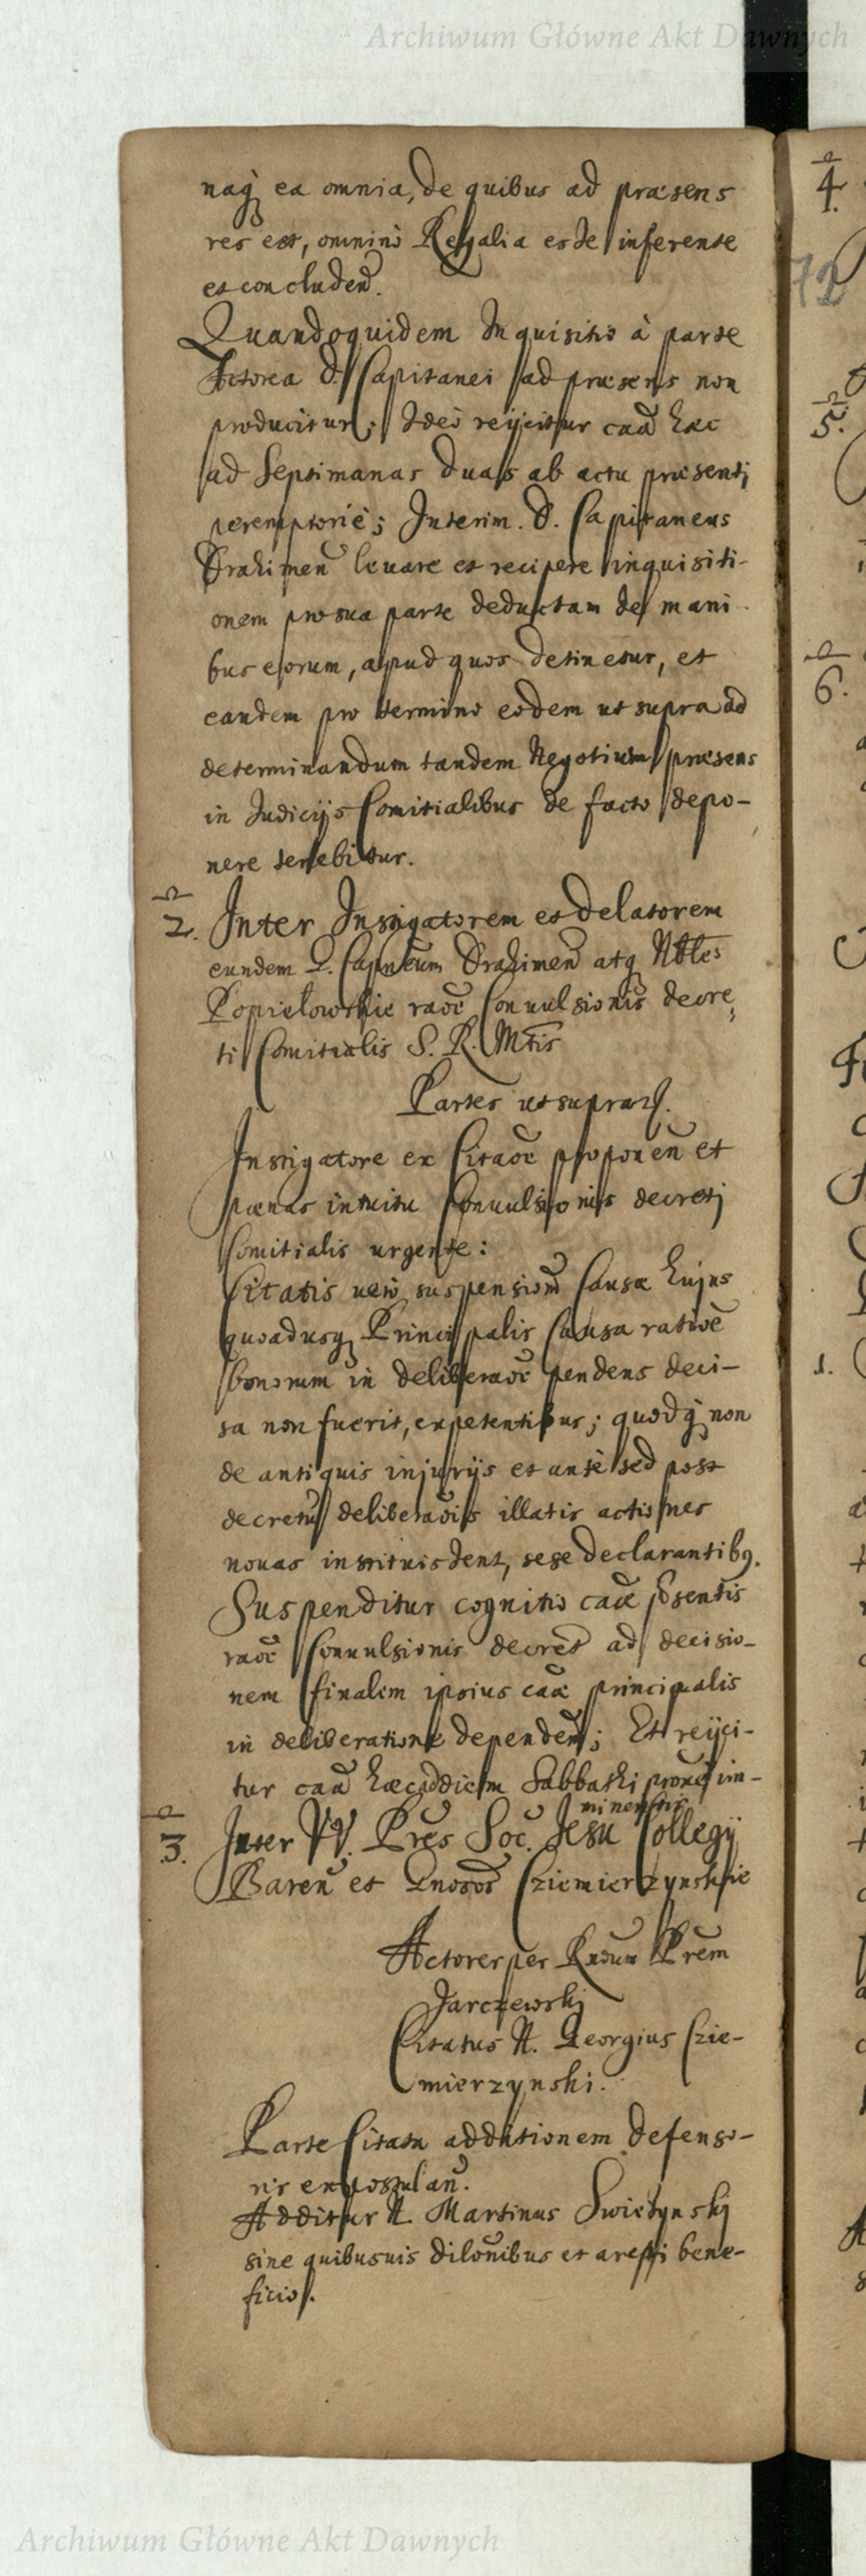 Archiwum Główne Akt Dawnych
naq́ ea omnia, de quibus ad præsens
res est, omninò Regalia esse inferente
et concluden̄.
Quandoquidem Inquisitio à parte
Actorea d. Capitanei ad præsens non
producitur; Ideò reijcitur caã hæc
ad Septimanas duas ab actu præsentj
peremptoriè; Interim. d. Capitaneus
Drahimen̄ levare et recipere inquisiti-
onem pro sua parte deductam de mani-
bus eorum, apud quos detinetur, et
eandem pro termino eodem ut supra ad
determinandum tandem Negotium præsens
in Judicijs Comitialibus de facto depo-
nere tenebitur.
2. Inter Instigatorem et delatorem
eundem G. Capneum Drahimen̄ atq Nbles
Popielowskie raõe Convulsionis decre
ti Comitialis S. R. Mtis
Partes ut supra.
Instigatore ex Citaõe proponen̄ et
pænas intuitu Convulsionis decretj
Comitialis urgente:
Citatis verò suspensionem Causæ hujus
quoadusq Principalis Causa ratiõe
bonorum in deliberaõe pendens deci-
sa non fuerit, expetentibus; quodq́ non
de antiquis injurijs et antè sed post
decretũ deliberaõis illatis actiones
novas instituissent, sese declarantibq.
Suspenditur cognitio caæ p̃sentis
raõe Convulsionis decret̃ ad decisio-
nem finalem ipsius caæ principalis
in deliberatione dependen̄; Et reijci-
tur caã hæc ad diem Sabbathi proxẽ im-
minentis
3. Inter VV. Pres Soc. Jesu Collegij
Baren̄ et Gnosos Cziemierzynskie
Actores per Rndum Prem
Jarczewskj
Citatus N. Georgius Czie-
mierzynski.
Parte Citata additionem defenso-
ris expostulan̄.
Additur N. Martinus Swiezynskj
sine quibusvis dilõnibus et aresti bene-
ficio.
72
4.
5.
6.
1.
Archiwum Główne Akt Dawnych